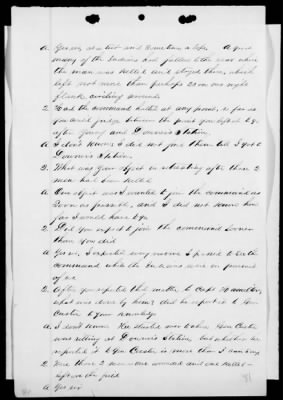 A. Yes sir, at a trot and sometimes a lope. A good
many of the Indians had followed to the rear where
the man was killed and stayed there, which
left not more than perhaps 20 on our right
flank circling around.
Q. Had the command halted at any point, as far as
you could judge between the point you left it to go
after Young and Downer's Station.
A. I don't know, I did not join them till I got to
Downer's Station.
Q. What was your object in not halting after these 2
men had been killed
A. Our object was I wanted to join the command as
soon as possible, and I did not know how
far I would have to go
Q. Did you expect to join the command sooner
than you did
A. Yes sir, I expected every minute I passed to see the
command while the Indians were in pursuit
of us.
Q. After you reported this matter to Capt Hamilton,
what was done by him? did he report it to Gen
Custer to your knowledge
A. I don't know. He started over to where Gen Custer
was sitting at Downer's Station, but whether he
reported it to Gen Custer is more than I can say.
Q. Were these 2 men one wounded and one killed
left on the field
A. Yes sir